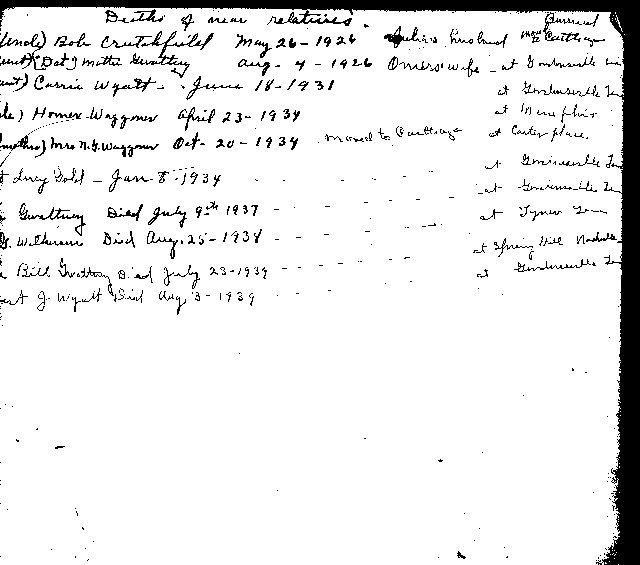 Deaths of near relatives. Burried
Uncle) Bob Crutchfield May 26-1926 Julia's husband Carthage
Aunt) (Dat) Motte Gwaltney Aug-4-1926 Omers wife - at Gordonsville
aunt) Carrie Wyatt - June 18-1931 at Gordonsville Ten
Homer Waggoner April 23-1934 at Memphis
Mrs N.G. Waggoner Oct-20-1934 moved to Carthage at Carter place.
Lucy Gold - Jan 8-1934 - - - - at Gordonsville Ten
Gwaltney Died July 9th 1937 - - - - at Gordonsville Ten
Died Aug. 25-1938 - - - - at Tyner Tenn
Bill Gwaltney Died July 23-1939 - - - - at Spring Hill Nashville
J. Wyatt Died Aug 3-1939 - - - - at Gordonsville Ten